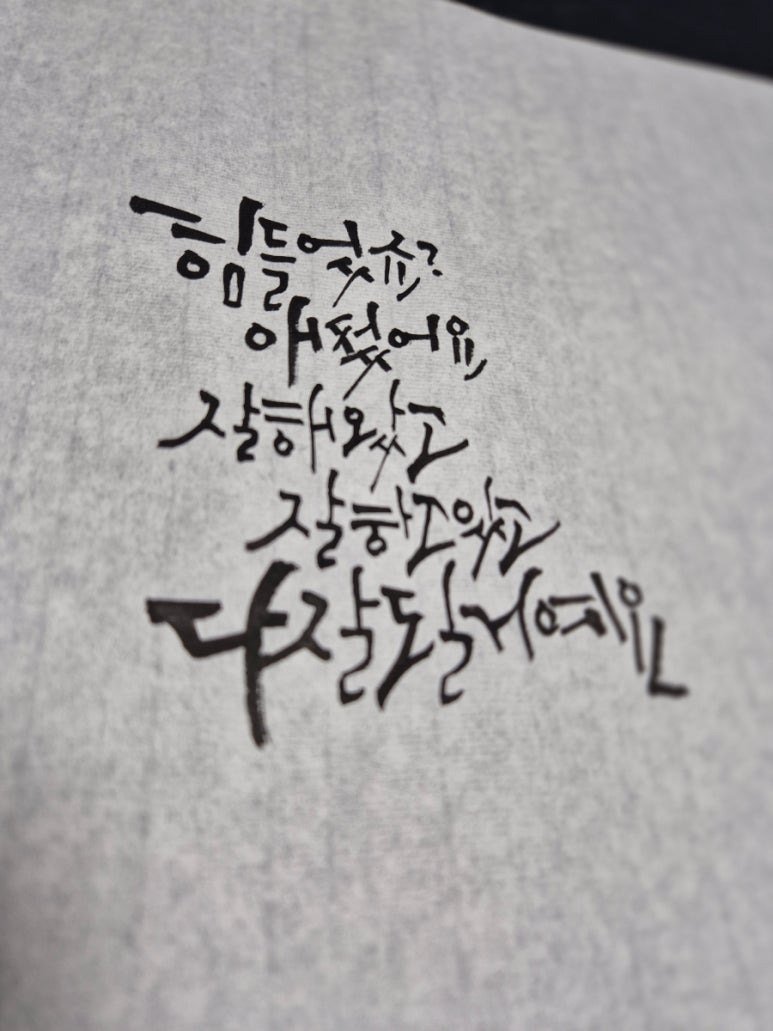 힘들었쥬?
애썼어요,
잘해왔고
잘하고있고
다잘될거예요